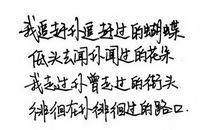 我追赶你追赶过的蝴蝶
低头去闻你闻过的花朵
我走过你曾走过的街头
徘徊在你徘徊过的路口.